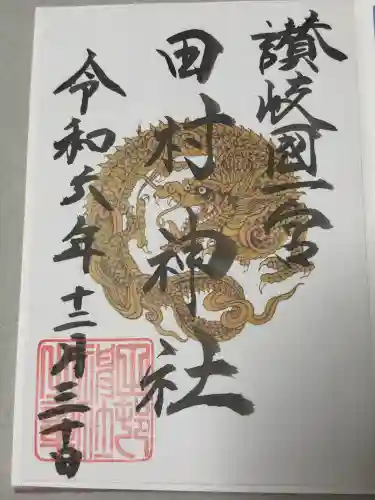 讃岐國一宮
田村神社
令和六年十二月三十日